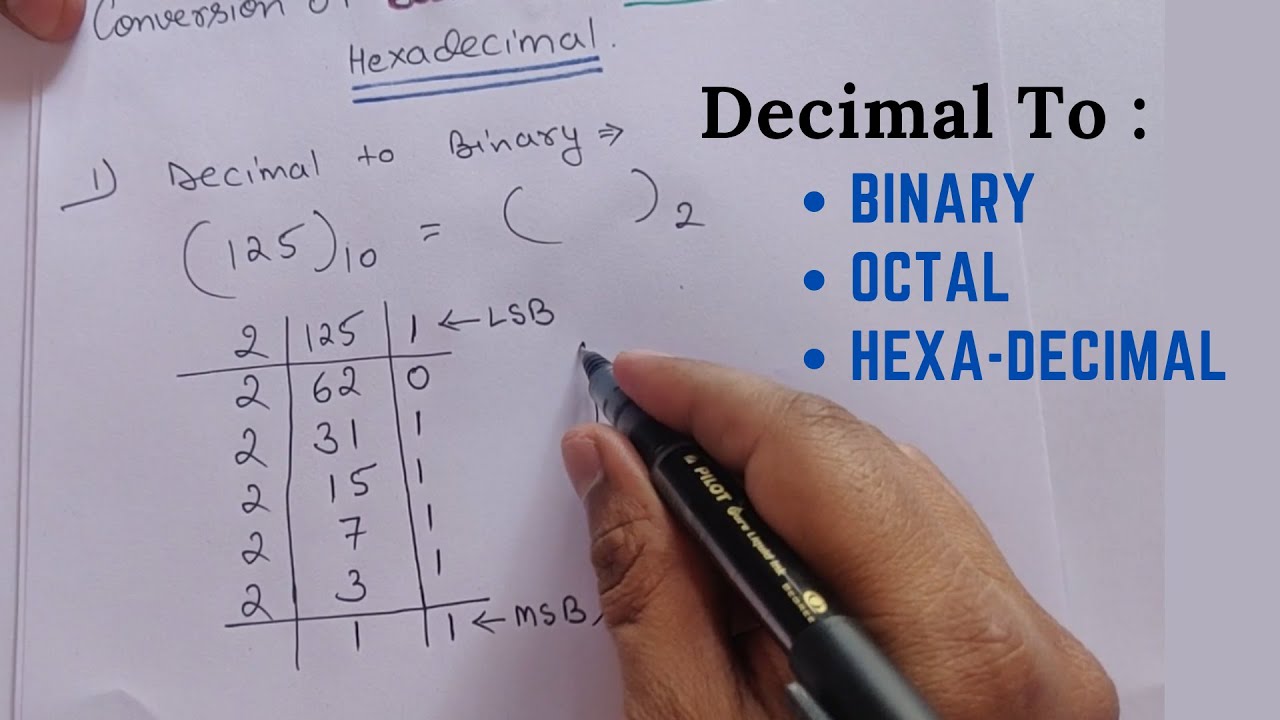 Conversion of
Hexadecimal.
1) Decimal to Binary ⇒
(125)10 = ( )2
2 | 125 | 1 ← LSB
2 | 62 | 0
2 | 31 | 1
2 | 15 | 1
2 | 7 | 1
2 | 3 | 1
1 | 1 ← MSB
PILOT
Liquid Ink
Decimal To :
• BINARY
• OCTAL
• HEXA-DECIMAL